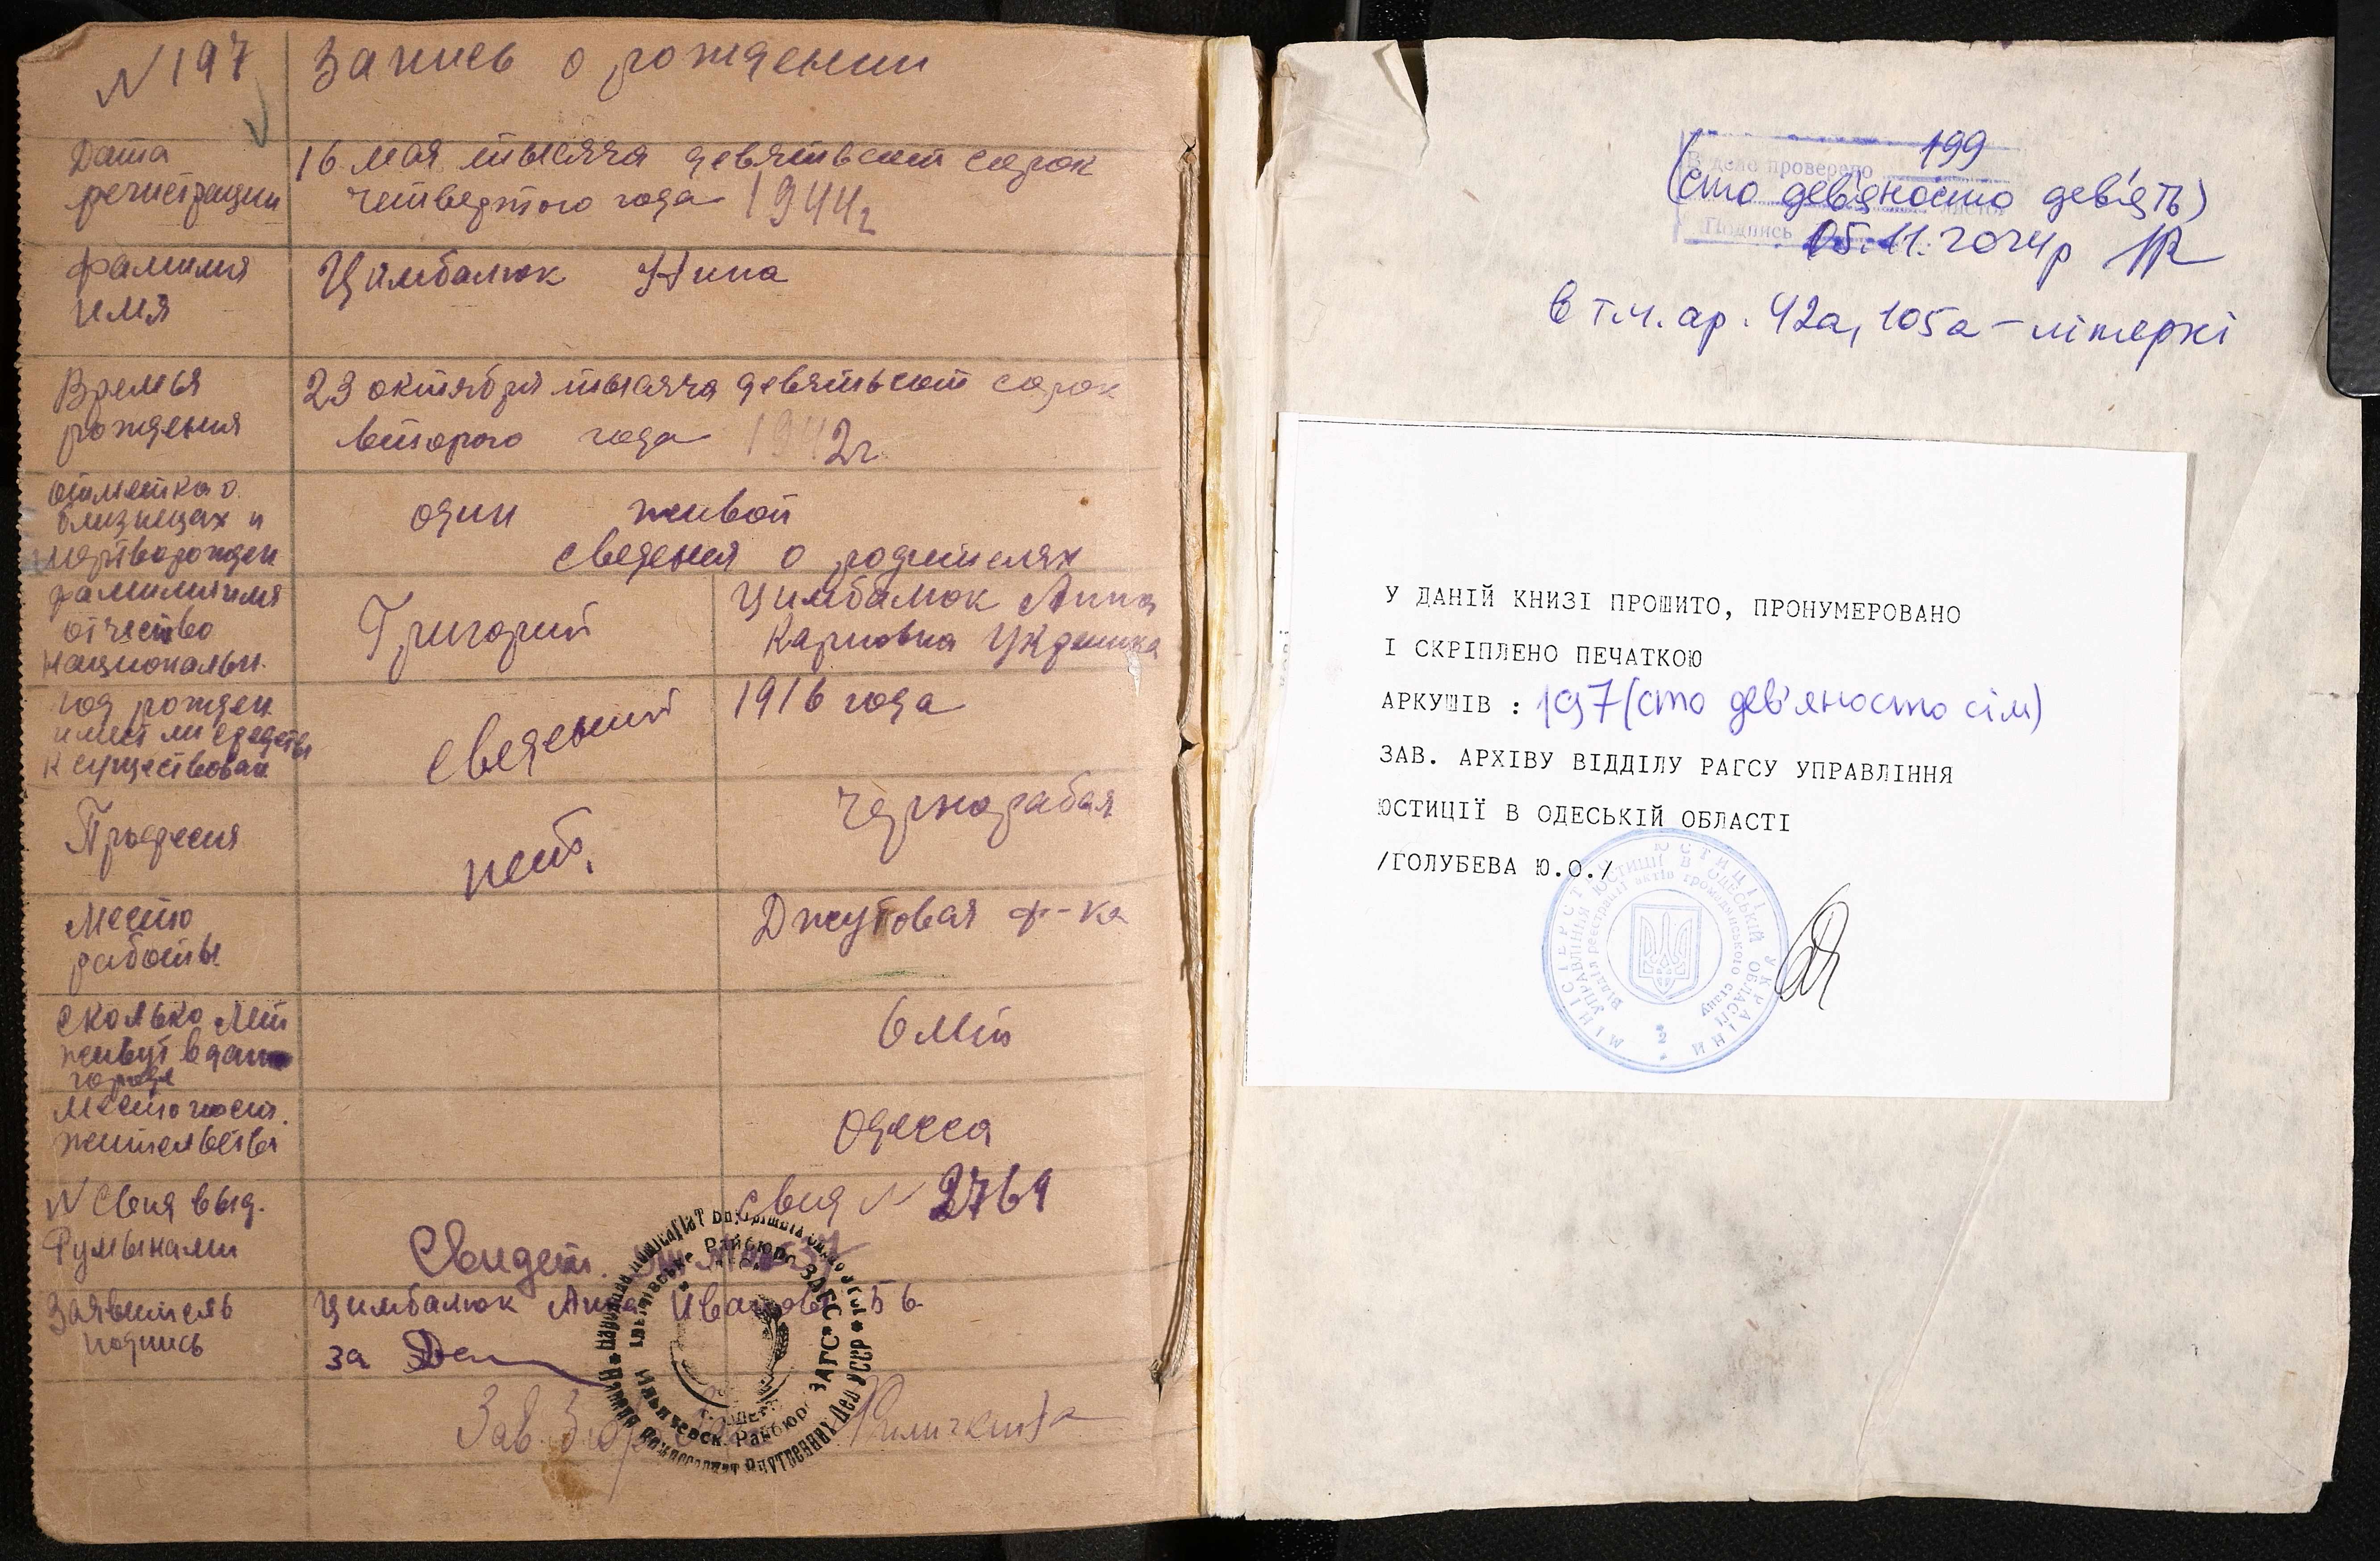 N 197
Запись о рождении
Дата
регистрации
16 мая тысяча девятьсот сорок
четвертого года 1944г
Фамилия
имя
Цимбалюк Нина
Времья
рождения
23 октября тысяча девятьсот сорок
второго года 1942г
Отметка о
близнецах и
мертворожден
один живой
сведения о родителях
фамилия имя
отчество
национальн.
Григорий
Цимбалюк Анна
Карповна Украинка
год рожден
имеют ли средства
к существован
сведений
1916 года
Професия
нет.
чернорабая
Место
работы
Джутовая ф-ка
Сколько лет
живут в дан
городе
6 лет
Место пост.
жительства
Одесса
N Свия выд.
Румынами
свия N 2769
Свидет.
Заявитель
подпись
Цимбалюк Анна
за
Зав.
Райбюро ЗАГС
Райбюро ЗАГС
Внутренних Дел УССР
В деле проверено
199
(сто дев'яносто дев'ять)
Подпись
05.11.2024р
в т.ч. ар. 42а, 105а – літерні
У ДАНІЙ КНИЗІ ПРОШИТО, ПРОНУМЕРОВАНО
І СКРІПЛЕНО ПЕЧАТКОЮ
АРКУШІВ : 197 (сто дев'яносто сім)
ЗАВ. АРХІВУ ВІДДІЛУ РАГСУ УПРАВЛІННЯ
ЮСТИЦІЇ В ОДЕСЬКІЙ ОБЛАСТІ
/ГОЛУБЕВА Ю.О./
МІНІСТЕРСТВО ЮСТИЦІЇ УКРАЇНИ
УПРАВЛІННЯ ЮСТИЦІЇ В ОДЕСЬКІЙ ОБЛАСТІ
Відділ реєстрації актів громадянського стану
* 2 *